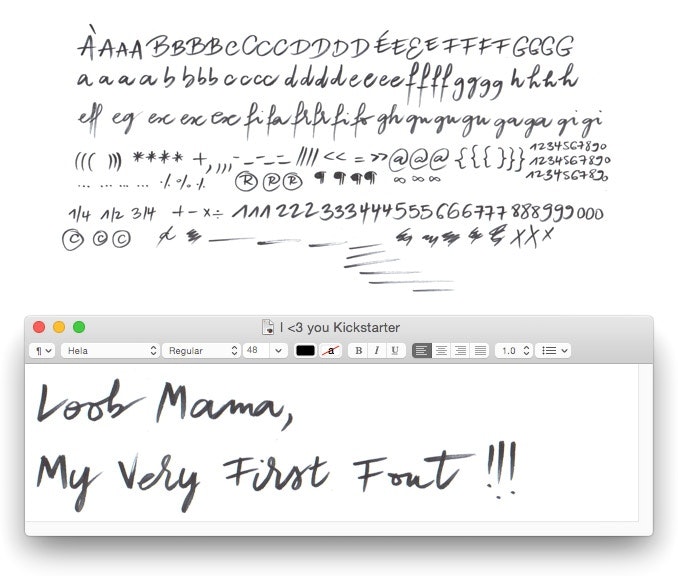 ÀAAA BBBB CCCC DDDD ÉEEE FFFF GGGG
a a a a b b b b c c c c d d d d e e e e f f f f g g g g h h h h
eff eg ex ex ex fi fa fr fr fi fo gh gu gu gu ga ga gi gi
((( ))) **** +,,,, -_-_-_ //// << = >> @@@ {{{ }}} 1234567890
1234567890
... ... ... ... ·/. % ·/. ® ® ® ¶ ¶ ¶ ¶ ∞ ∞ ∞ 1234567890
1/4 1/2 3/4 + - × ÷ 111 222 333 444 555 666 777 888 999 000
© © © XXX
I <3 you Kickstarter
¶ Hela Regular 48 a B I U 1.0
Loob Mama,
My Very First Font !!!